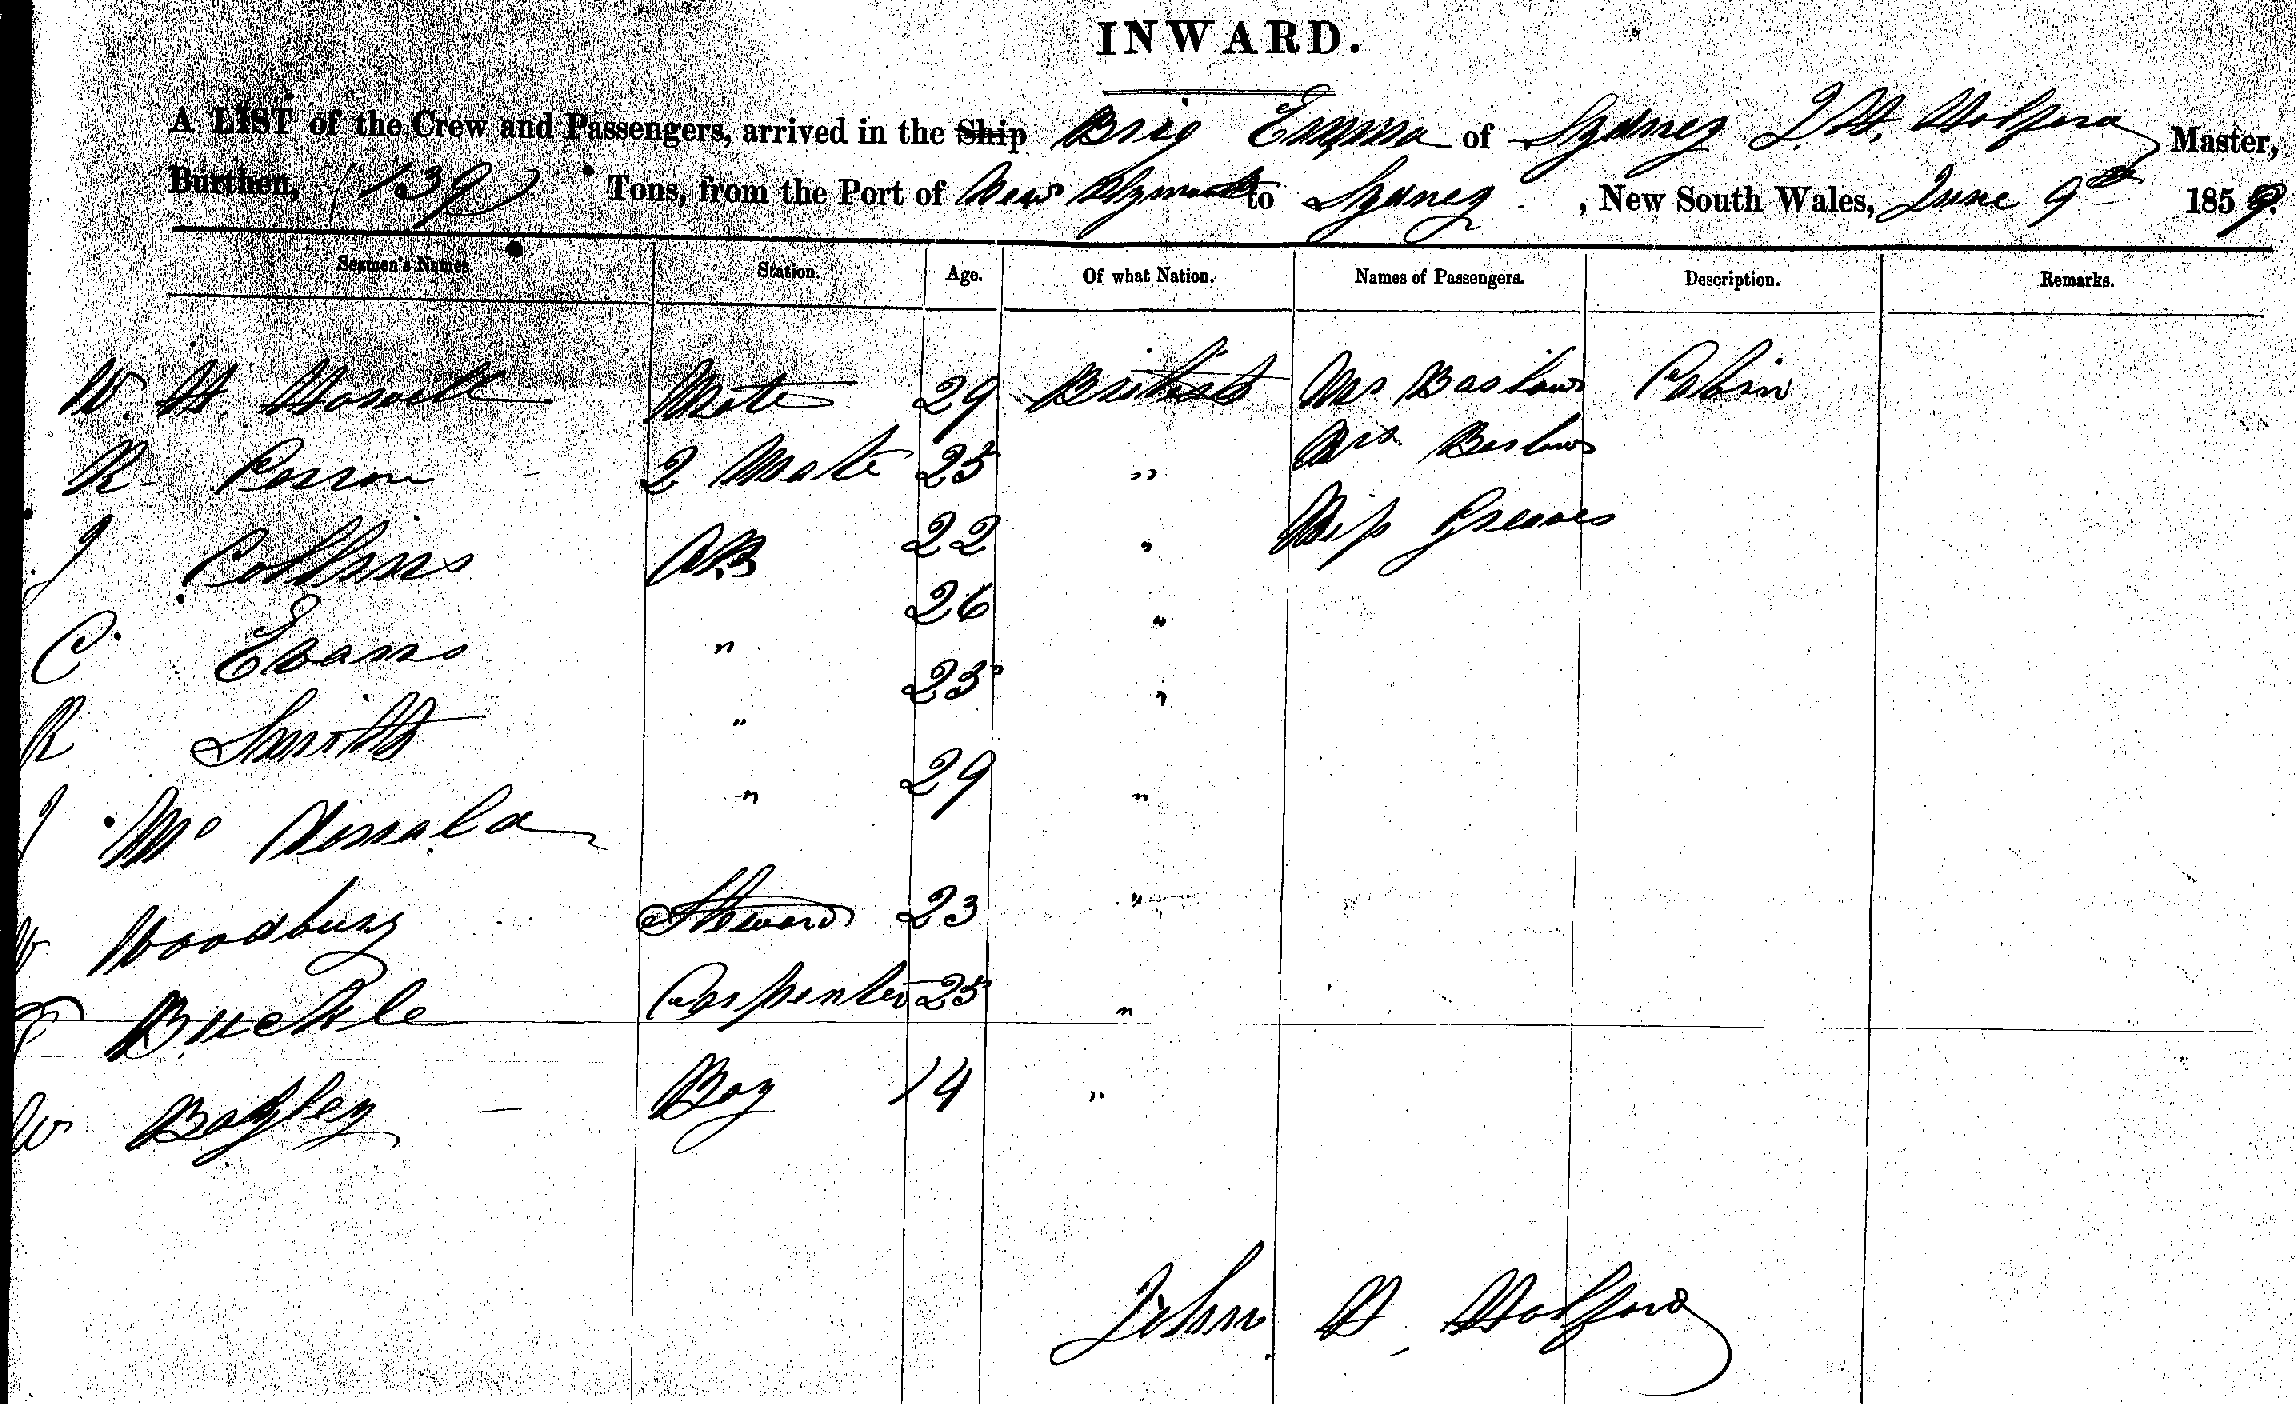 INWARD.
A LIST of the Crew and Passengers, arrived in the Ship Brig Emma of Sydney J. H. Wolford Master,
Burthen, 139 Tons, from the Port of New Plymouth to Sydney, New South Wales, June 9th 1859.
Seamen's Names. Station. Age. Of what Nation. Names of Passengers. Description. Remarks.
W. H. Mate 29 British Mr Barlow Cabin
R 2 Mate 25 " Mrs Barlow
J Collins AB 22 " Miss Greaves
C. Evans " 26 "
R Smith " 25 "
J Mc " 29 "
W Woodbury Steward 23 "
Buckle Carpenter 25 "
W Bagley - Boy 14 "
John H. Wolford